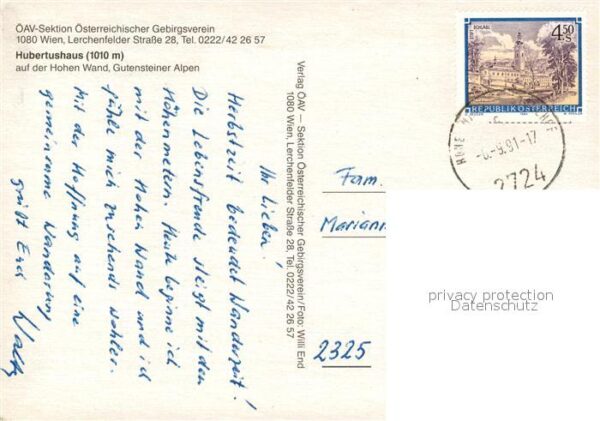 ÖAV-Sektion Österreichischer Gebirgsverein
1080 Wien, Lerchenfelder Straße 28, Tel. 0222/42 26 57
Hubertushaus (1010 m)
auf der Hohen Wand, Gutensteiner Alpen
Ihr Lieben!
Herbstzeit bedeutet Wanderzeit!
Die Lebensfreude steigt mit den
Höhenmetern. Heute beginne ich
mit der Hohen Wand und ich
fühle mich zusehends wohler.
Mit der Hoffnung auf eine
gemeinsame Wanderung
grüßt Euch
Verlag ÖAV — Sektion Österreichischer Gebirgsverein/Foto: Willi End
1080 Wien, Lerchenfelder Straße 28, Tel. 0222/42 26 57
4.50
S
REPUBLIK ÖSTERREICH
-6.-9.91-17
2724
Fam.
Mariann
2325
privacy protection
Datenschutz